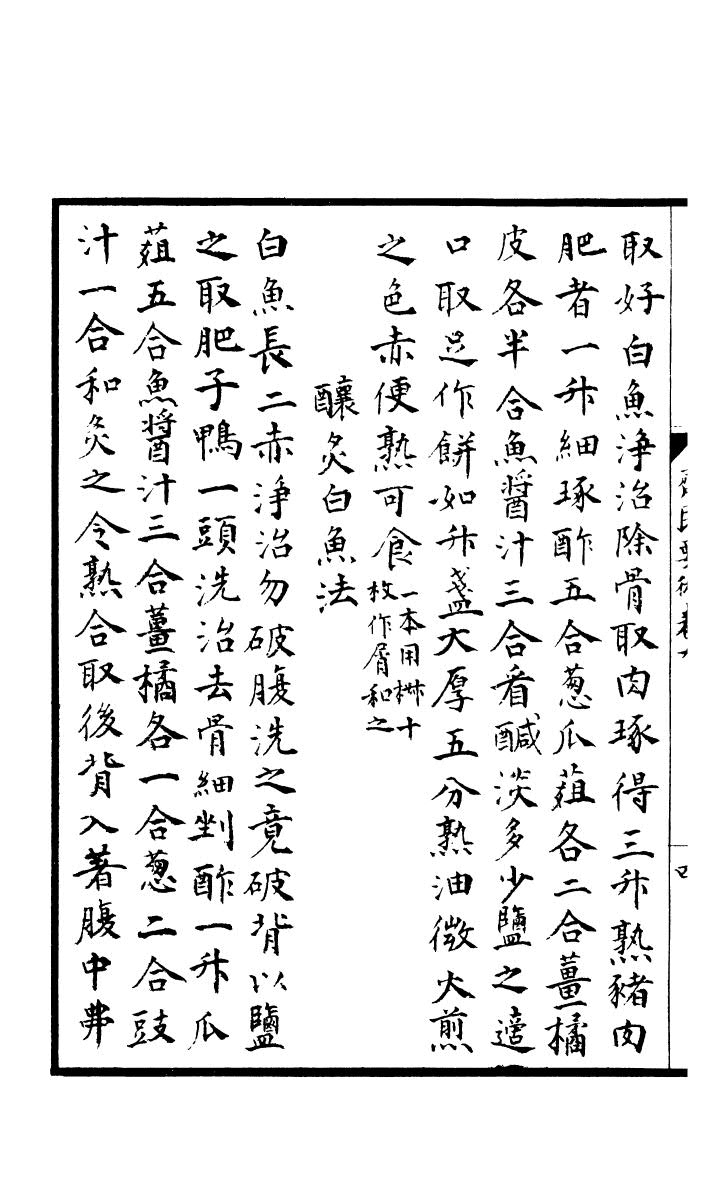 取好白魚淨治除骨取肉琢得三升熟豬肉
肥者一升細琢酢五合葱瓜葅各二合薑橘
皮各半合魚醬汁三合看鹹淡多少鹽之適
口取足作餅如升盞大厚五分熟油微火煎
之色赤便熟可食一本用椒十
枚作屑和之
釀炙白魚法
白魚長二赤淨治勿破腹洗之竟破背以鹽
之取肥子鴨一頭洗治去骨細剉酢一升瓜
葅五合魚醬汁三合薑橘各一合葱二合豉
汁一合和炙之令熟合取後背入著腹中弗
齊民要術卷九
四